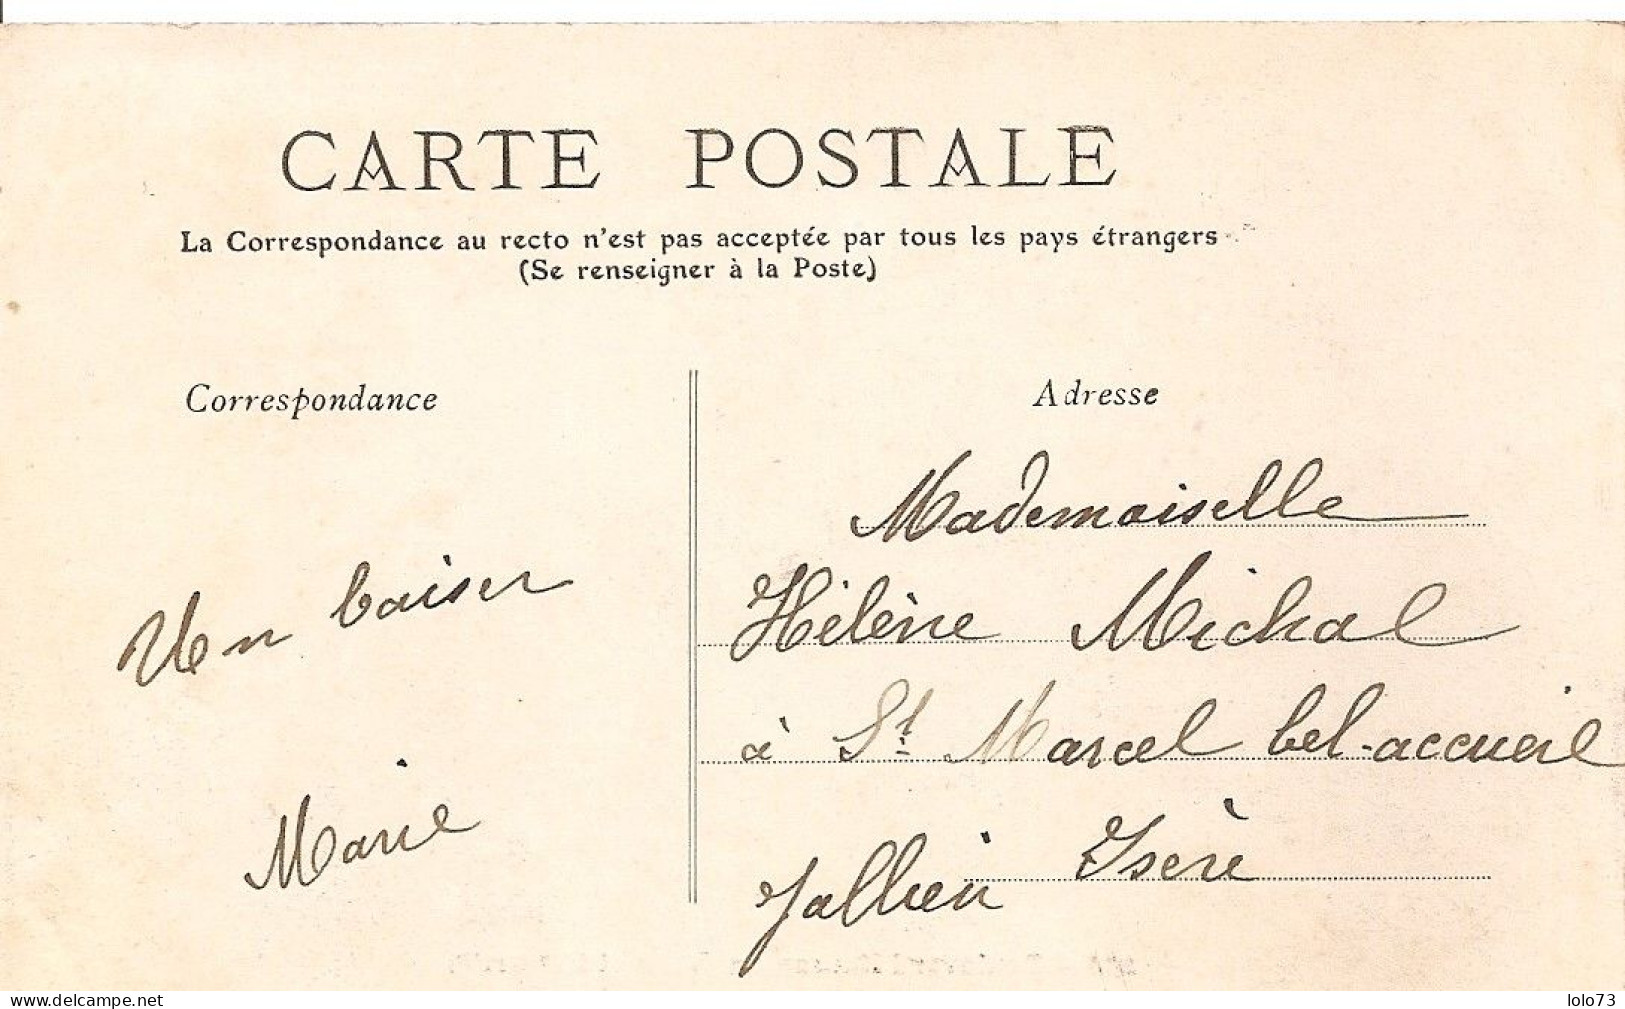 CARTE POSTALE
La Correspondance au recto n'est pas acceptée par tous les pays étrangers
(Se renseigner à la Poste)
Correspondance
Un baiser
Marie
Adresse
Mademoiselle
Hélène Michal
à St Marcel bel-accueil
Jallieu Isère
www.delcampe.net
lolo73